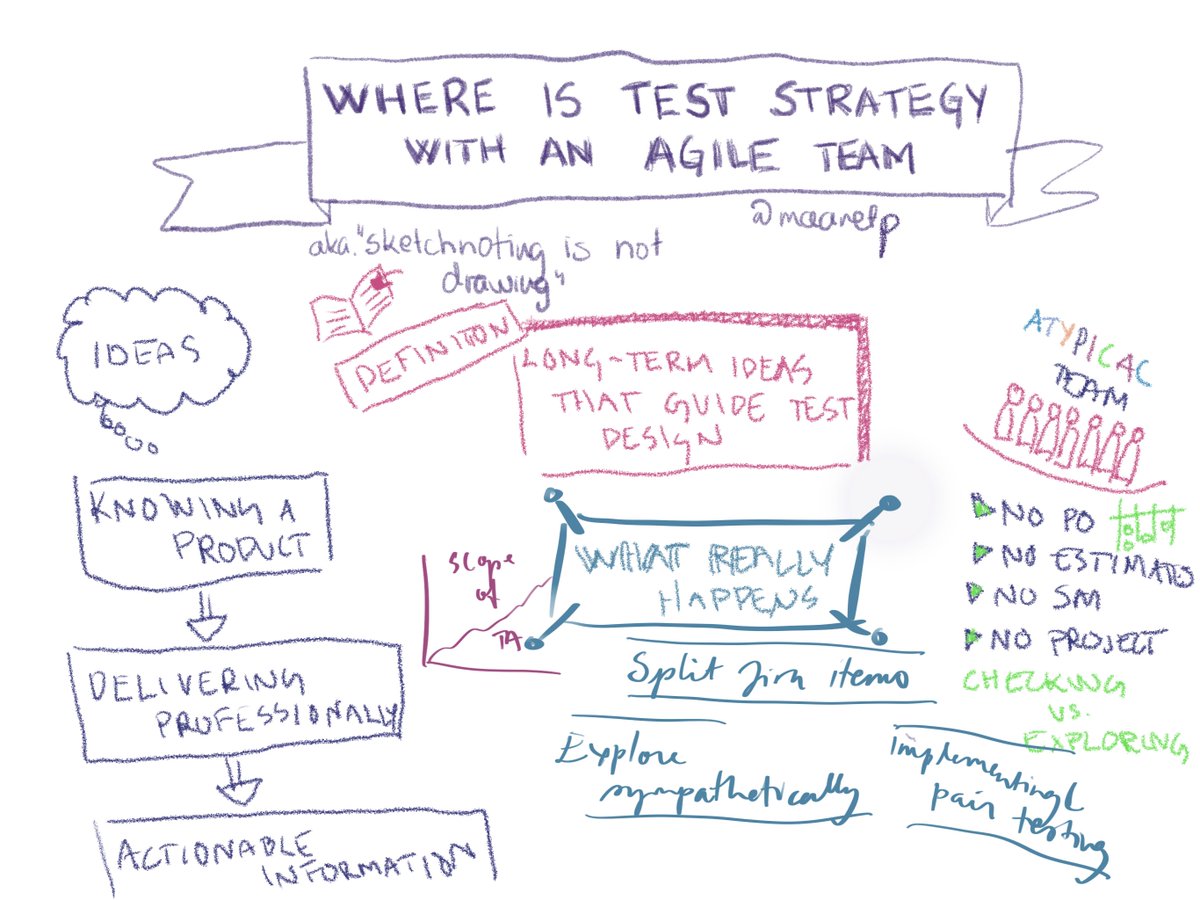 WHERE IS TEST STRATEGY
WITH AN AGILE TEAM
@maaretp
aka. "sketchnoting is not
drawing"
IDEAS
KNOWING A
PRODUCT
DELIVERING
PROFESSIONALLY
ACTIONABLE
INFORMATION
DEFINITION
LONG-TERM IDEAS
THAT GUIDE TEST
DESIGN
Scope
of
TA
WHAT REALLY
HAPPENS
Split Jira items
Explore
sympathetically
Implementing &
pair testing
ATYPICAL
TEAM
NO PO
NO ESTIMATES
NO SM
NO PROJECT
CHECKING
VS.
EXPLORING